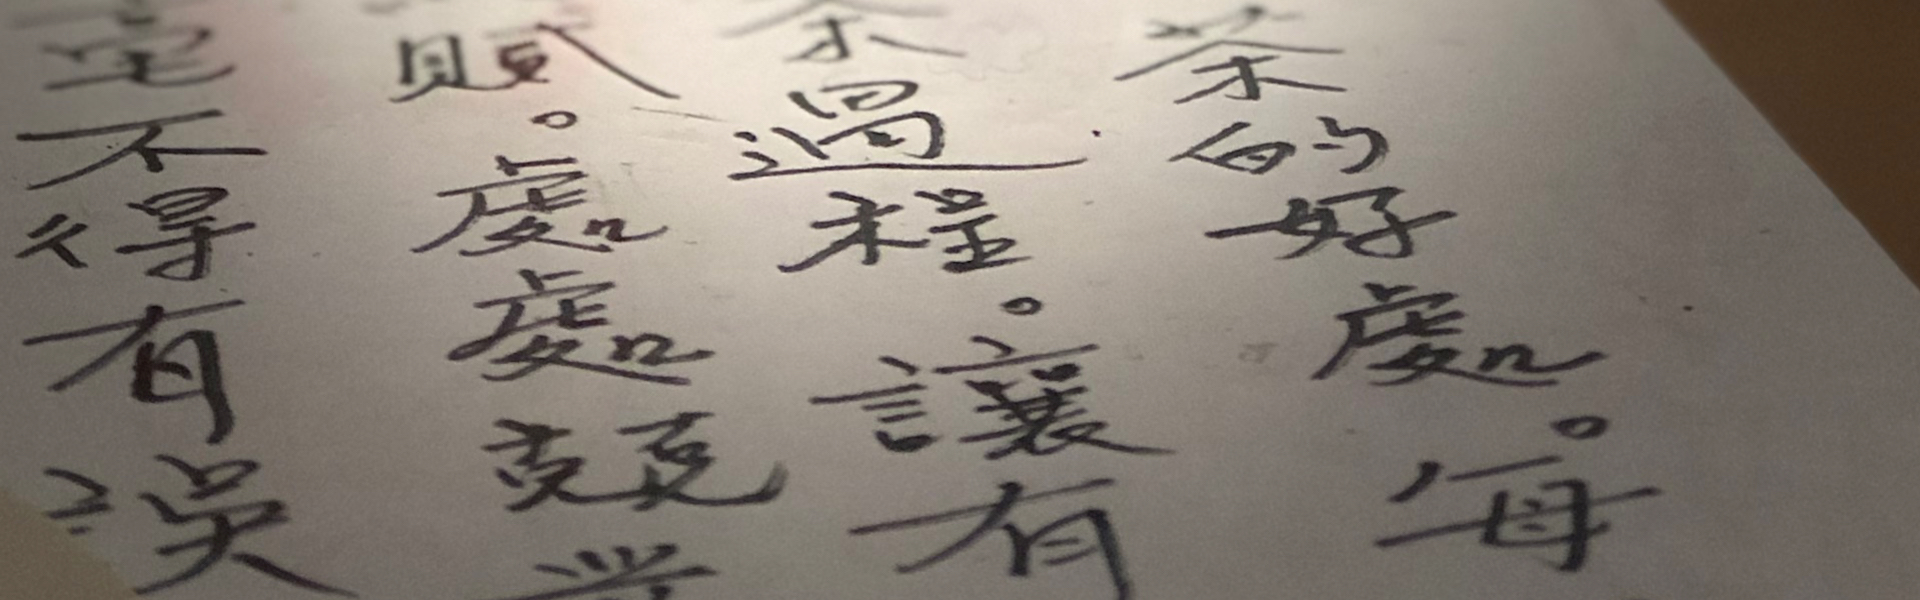 茶的好處。每
茶過程。讓有
賦。處處競業
毫不得有誤